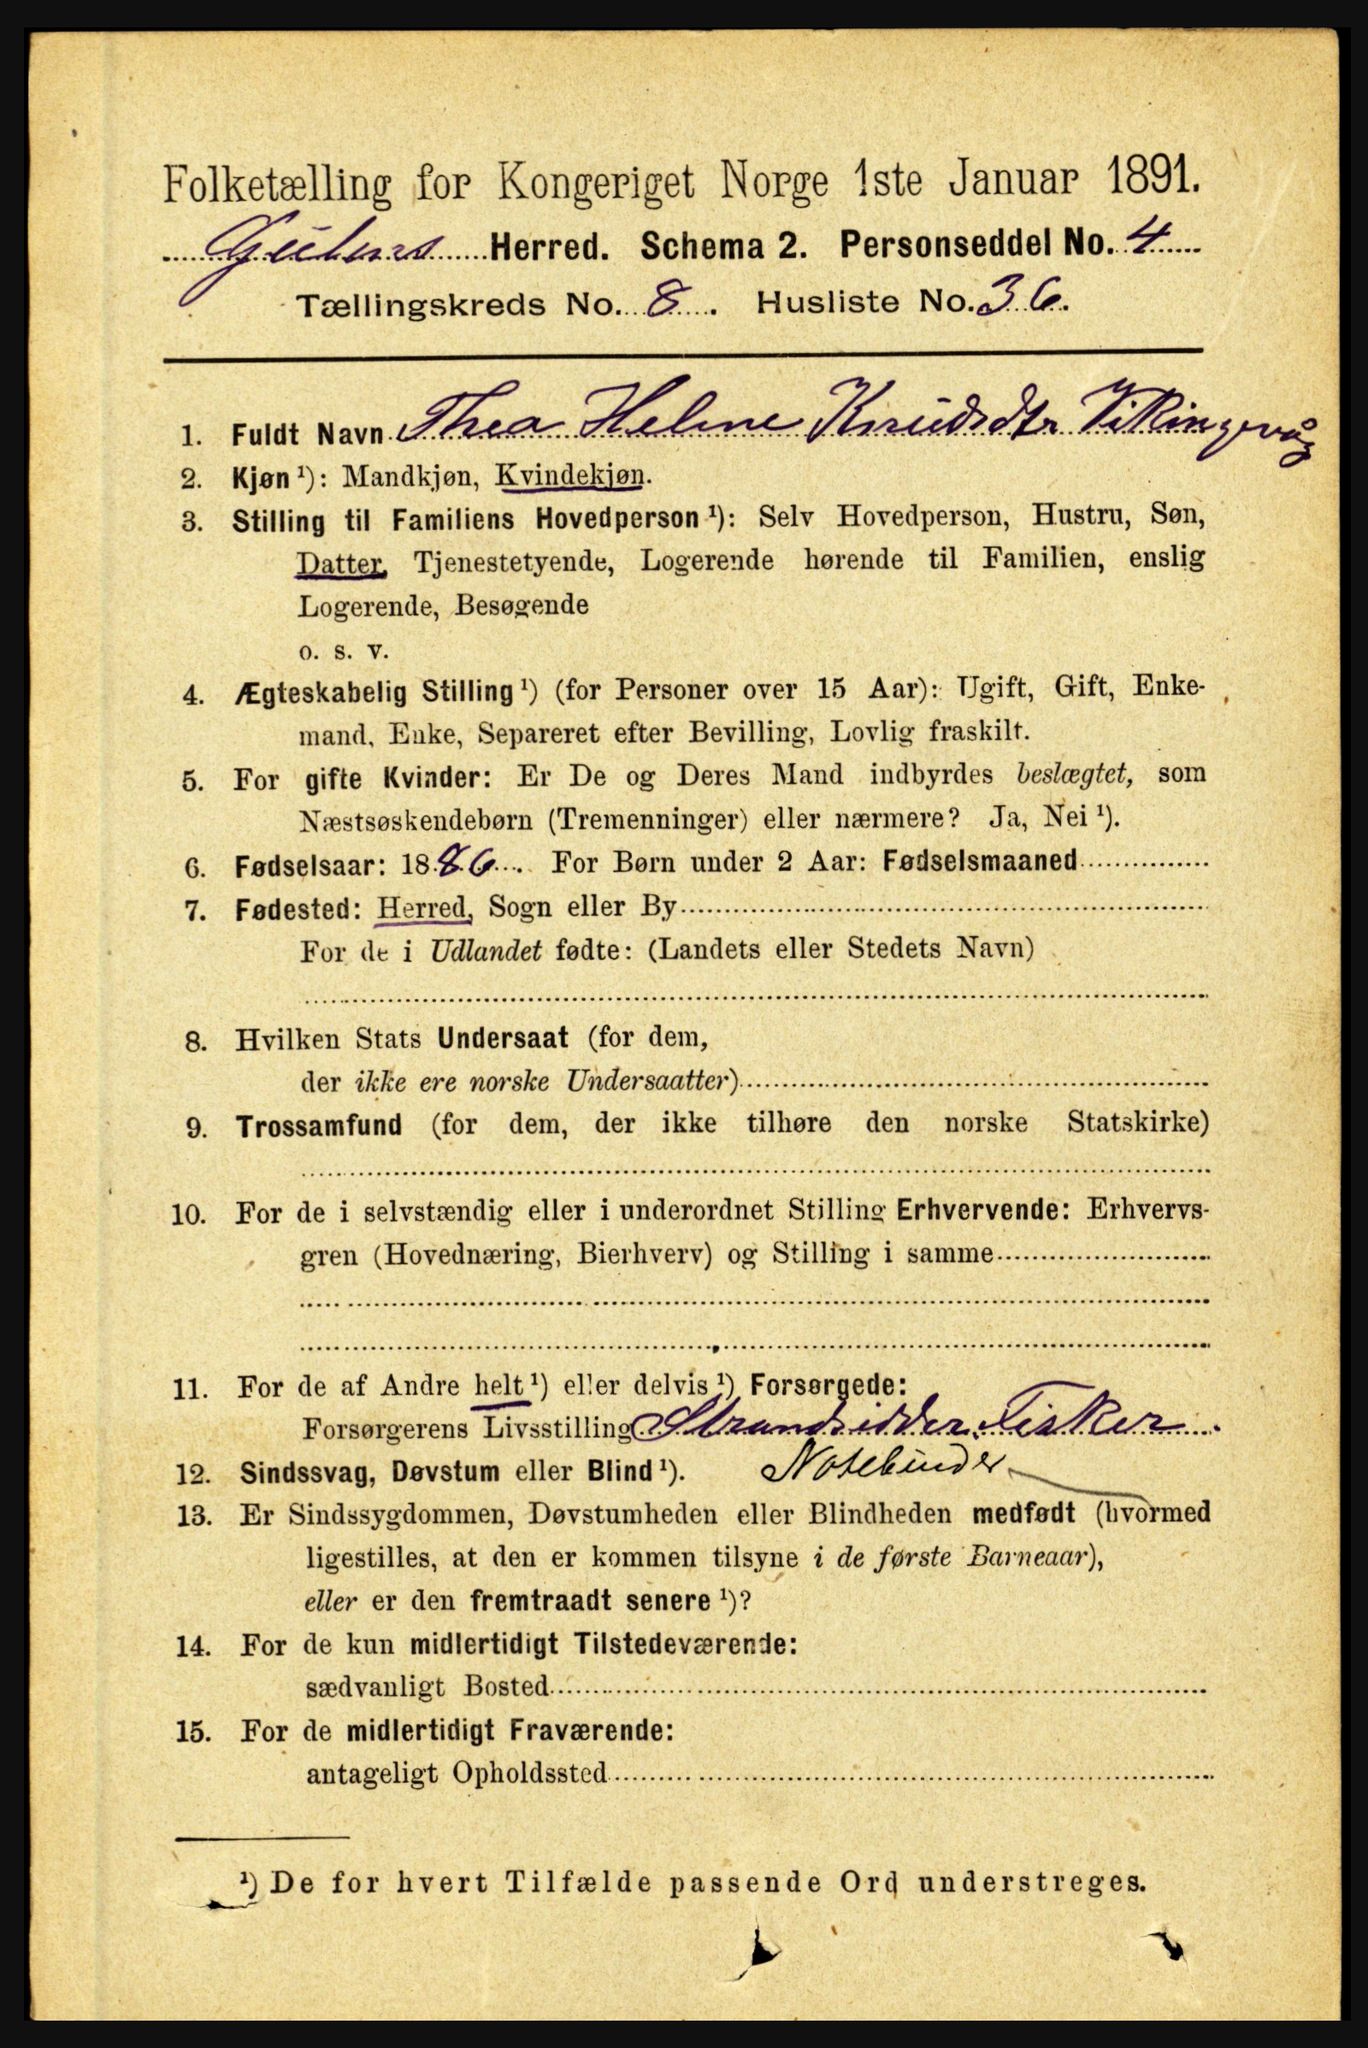 Folketælling for Kongeriget Norge 1ste Januar 1891.
Gulens Herred. Schema 2. Personseddel No. 4
Tællingskreds No. 8. Husliste No. 36.
1. Fuldt Navn Thea Helene Knudsdtr Vikingevåg
2. Kjøn ¹): Mandkjøn, Kvindekjøn.
3. Stilling til Familiens Hovedperson ¹): Selv Hovedperson, Hustru, Søn,
Datter, Tjenestetyende, Logerende hørende til Familien, enslig
Logerende, Besøgende
o. s. v.
4. Ægteskabelig Stilling ¹) (for Personer over 15 Aar): Ugift, Gift, Enke-
mand, Enke, Separeret efter Bevilling, Lovlig fraskilt.
5. For gifte Kvinder: Er De og Deres Mand indbyrdes beslægtet, som
Næstsøskendebørn (Tremenninger) eller nærmere? Ja, Nei ¹).
6. Fødselsaar: 1886. For Børn under 2 Aar: Fødselsmaaned
7. Fødested: Herred, Sogn eller By
For de i Udlandet fødte: (Landets eller Stedets Navn)
8. Hvilken Stats Undersaat (for dem,
der ikke ere norske Undersaatter)
9. Trossamfund (for dem, der ikke tilhøre den norske Statskirke)
10. For de i selvstændig eller i underordnet Stilling Erhvervende: Erhvervs-
gren (Hovednæring, Bierhverv) og Stilling i samme
11. For de af Andre helt ¹) eller delvis ¹) Forsørgede:
Forsørgerens Livsstilling Strandsidder, Fisker
12. Sindssvag, Døvstum eller Blind ¹). Notebinder
13. Er Sindssygdommen, Døvstumheden eller Blindheden medfødt (hvormed
ligestilles, at den er kommen tilsyne i de første Barneaar),
eller er den fremtraadt senere ¹)?
14. For de kun midlertidigt Tilstedeværende:
sædvanligt Bosted
15. For de midlertidigt Fraværende:
antageligt Opholdssted
¹) De for hvert Tilfælde passende Ord understreges.